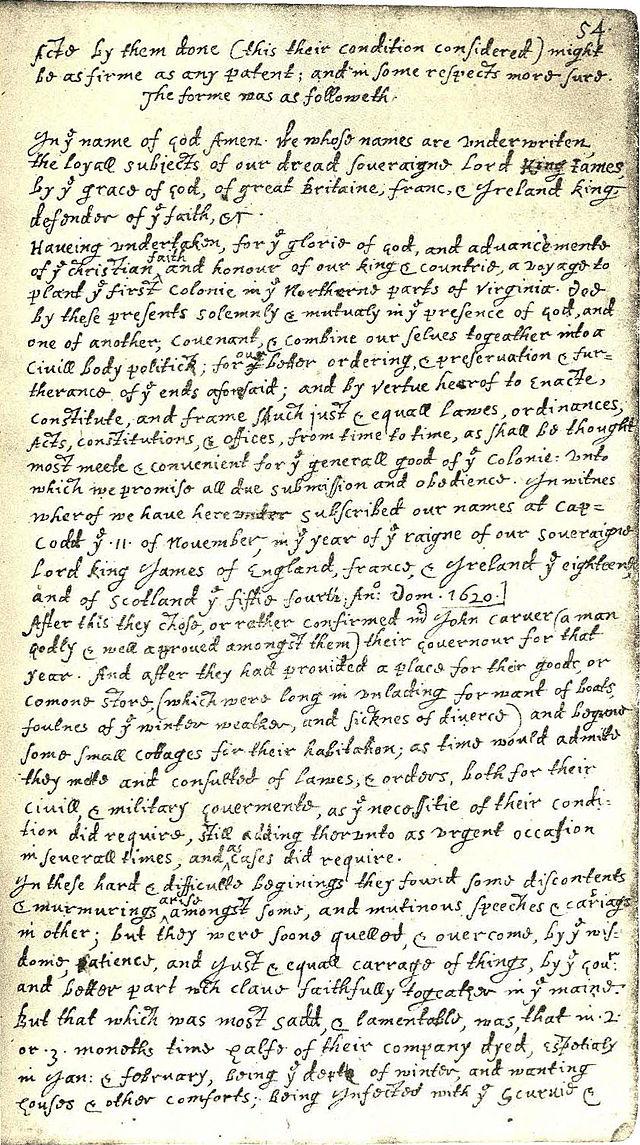 54.
Acts by them done (this their condition considered) might
be as firme as any patent; and in some respects more sure.
The forme was as followeth.
In yͤ name of god Amen. We whose names are underwriten,
the loyall subjects of our dread soveraigne Lord King James,
by yͤ grace of god, of great Britaine, franc, & Ireland king,
defender of yͤ faith, &c.
Haveing undertaken, for yͤ glorie of god, and advancemente
of yͤ christian faith and honour of our king & countrie, a voyage to
plant yͤ first colonie in yͤ Northerne parts of Virginia. Doe
by these presents solemnly & mutualy in yͤ presence of god, and
one of another; covenant, & combine our selves togeather into a
Civill body politick; for our better ordering, & preservation & fur=
therance of yͤ ends aforesaid; and by vertue hearof to Enacte,
constitute, and frame such just & equall lawes, ordinances,
Acts, constitutions, & offices, from time to time, as shall be thought
most meete & convenient for yͤ generall good of yͤ Colonie: unto
which we promise all due submission and obedience. In witnes
wherof we have hereunder subscribed our names at Cap=
Codd yͤ .11. of November, in yͤ year of yͤ raigne of our soveraigne
Lord king James of England, france, & Ireland yͤ eighteenth
and of Scotland yͤ fiftie fourth. An: Dom. 1620.]
After this they chose, or rather confirmed mͬ John carver (a man
godly & well approved amongst them) their governour for that
year. And after they had provided a place for their goods, or
comone store, (which were long in unlading for want of boats,
foulnes of yͤ winter weather, and sicknes of diverce) and begune
some small cottages for their habitation; as time would admitte
they mette and consulted of lawes, & orders, both for their
civill, & military govermente, as yͤ necessitie of their condi-
tion did require, still adding therunto as urgent occasion
in severall times, and as cases did require.
In these hard & difficulte beginings they found some discontents
& murmurings arise amongst some, and mutinous speeches & cariags
in other; but they were soone quelled, & overcome, by yͤ wis=
dome, patience, and just & equall carrage of things, by yͤ govͬ
and better part wͨʰ clave faithfully togeather in yͤ maine.
But that which was most sadd, & lamentable, was, that in .2.
or .3. moneths time halfe of their company dyed, espetialy
in Jan: & february, being yͤ depth of winter, and wanting
houses & other comforts; being Infected with yͤ Scurvie &